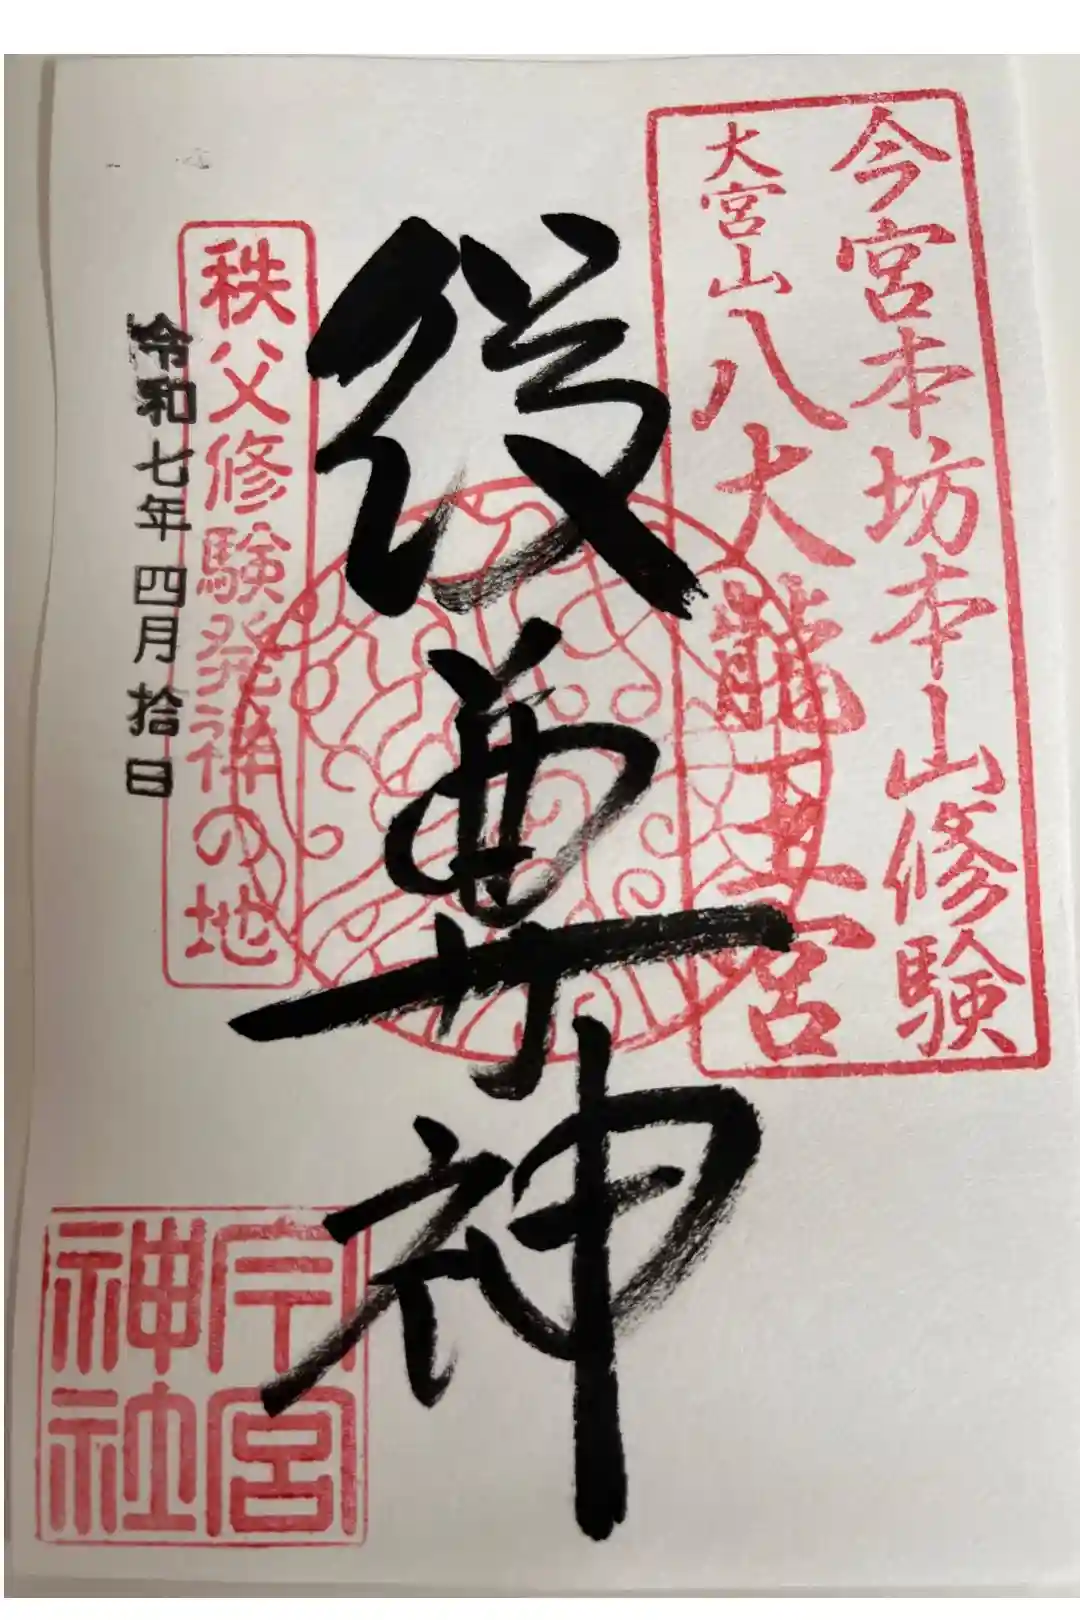 今宮本坊本山修験
大宮山八大龍王宮
役尊神
秩父修験発祥の地
令和七年四月拾日
今宮
神社